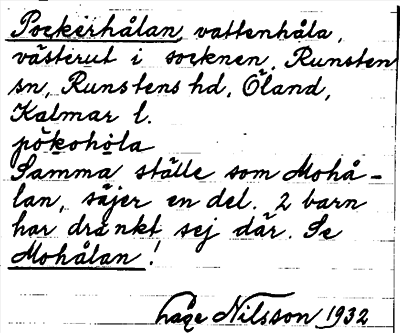 Pockerhålan, vattenhåla,
västerut i socknen, Runsten
sn, Runstens hd, Öland,
Kalmar l.
pökohola
Samma ställe som Mohå-
lan, säjer en del. 2 barn
har dränkt sej där. Se
Mohålan!
Håge Nilsson 1932